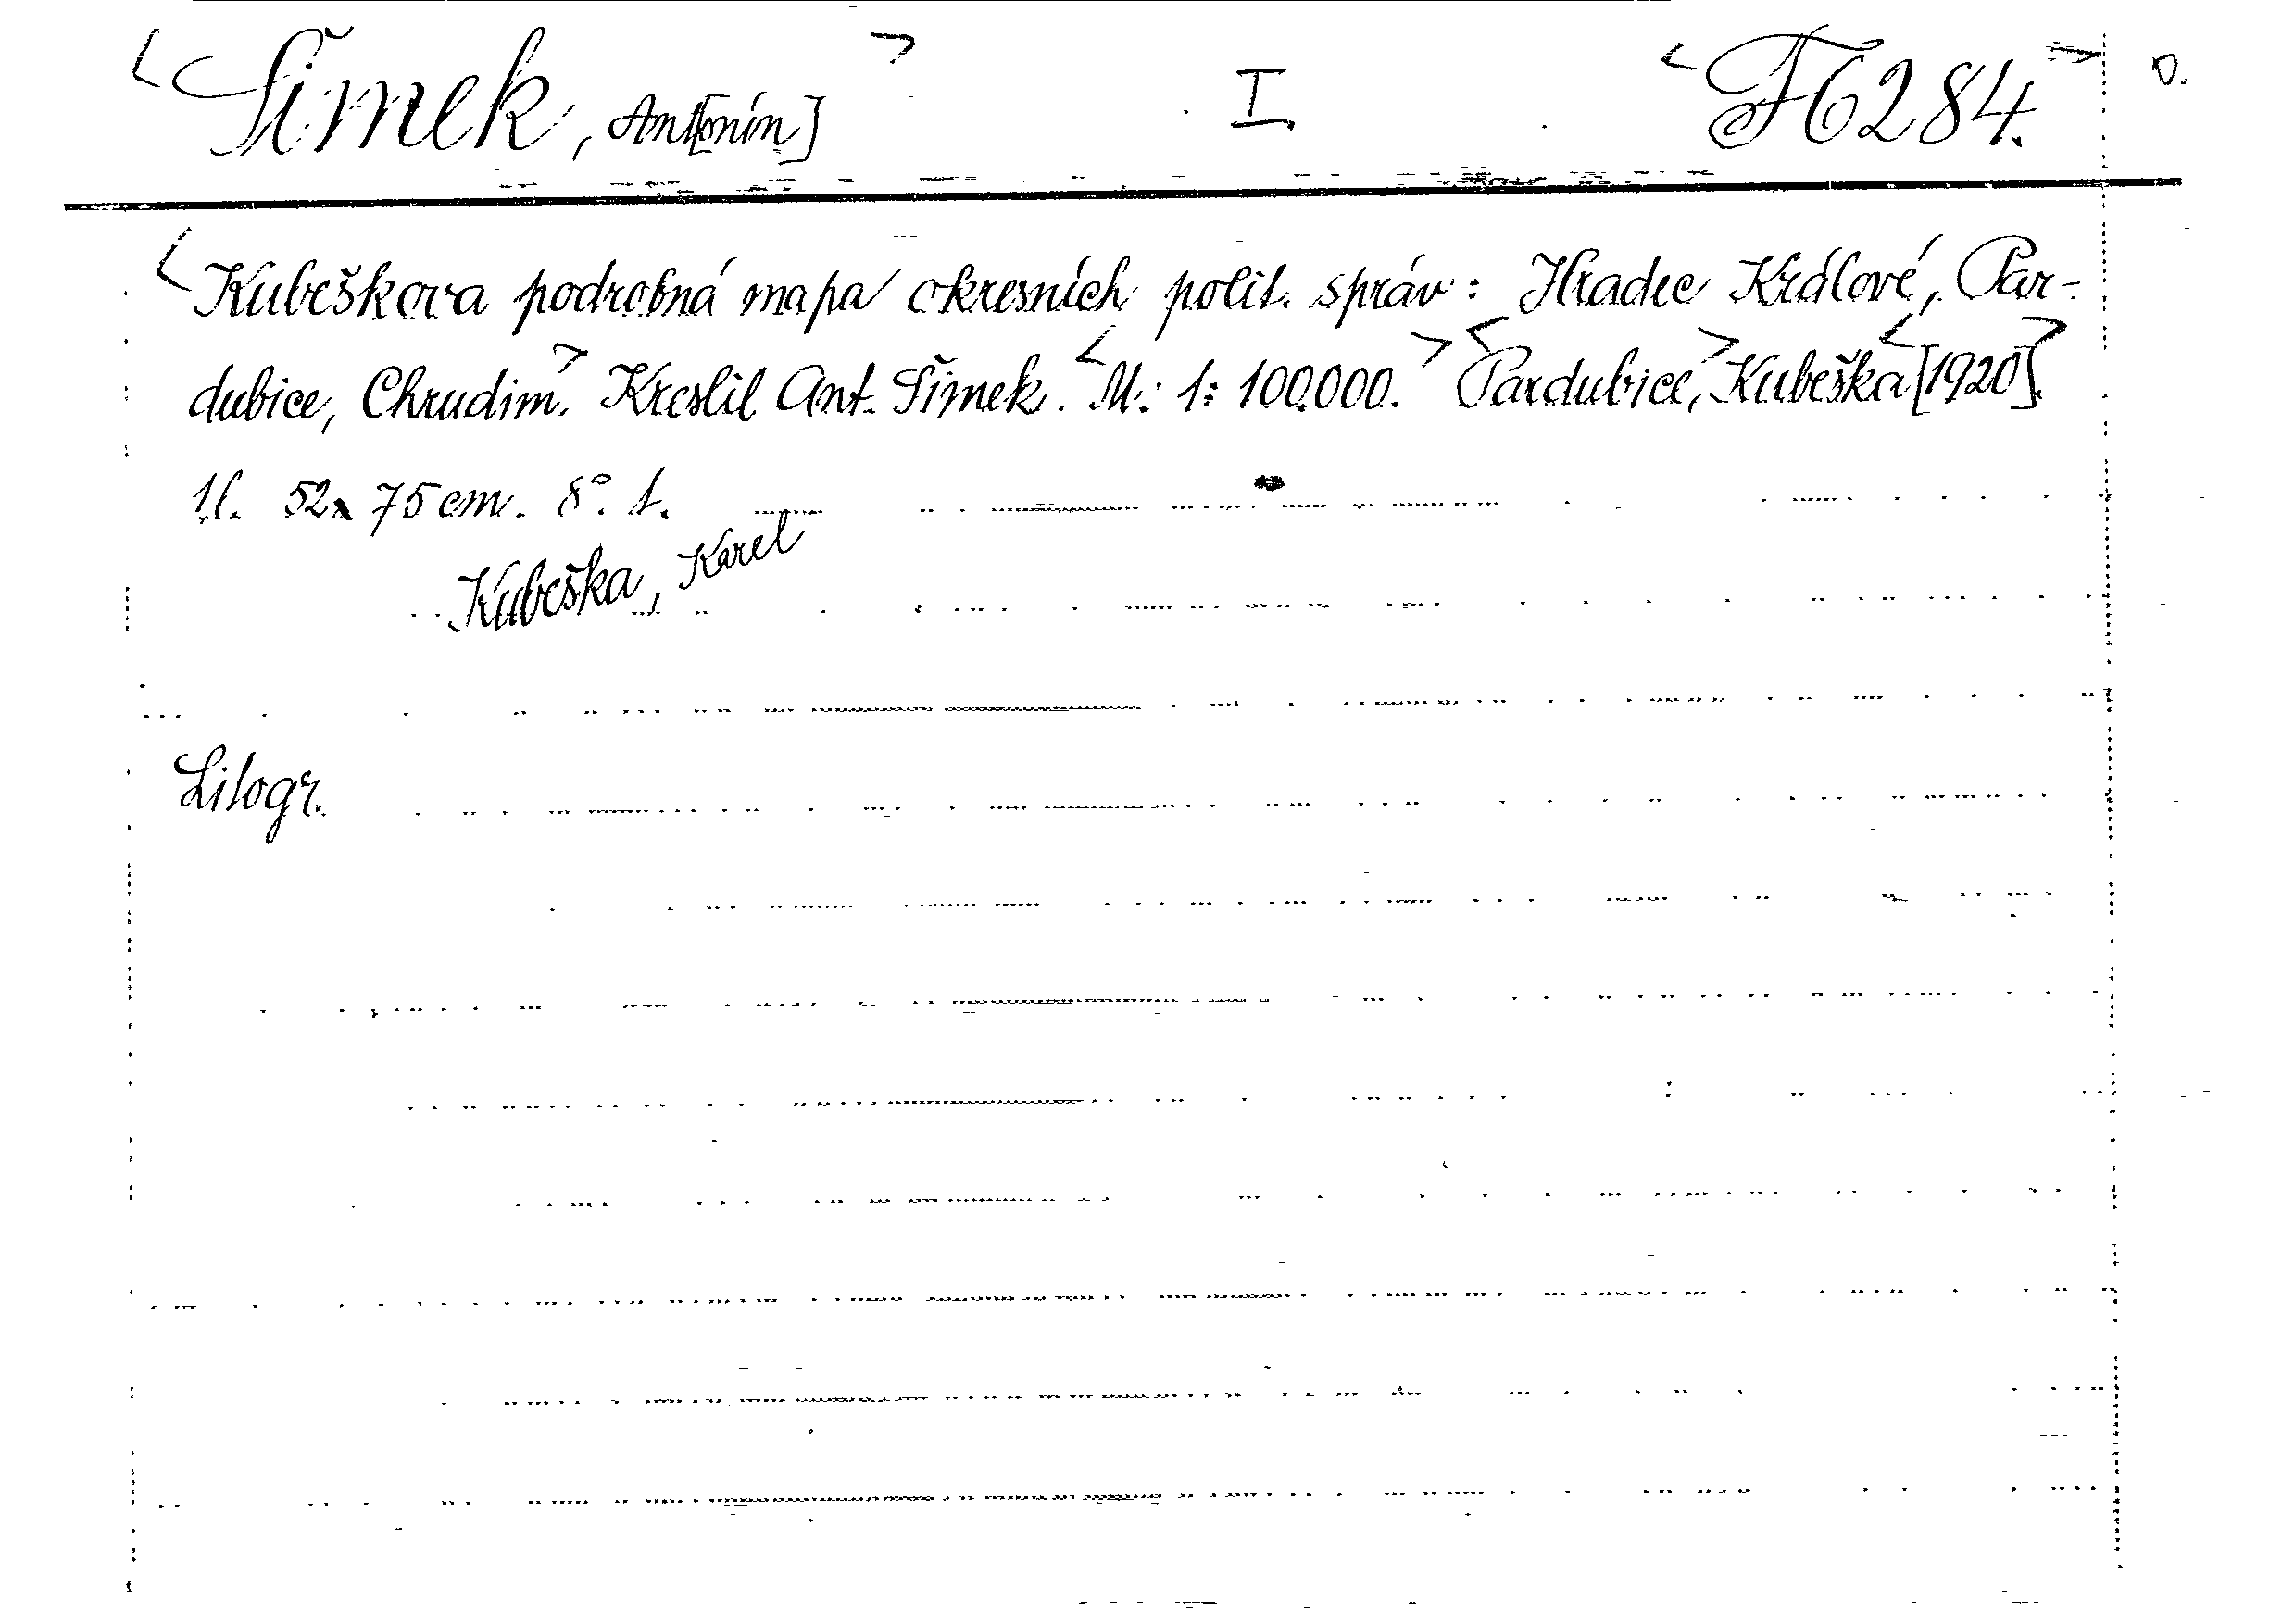 <Šimek, Ant[onín]> I. <F6284.> D.
<Kubeškova podrobná mapa okresních polit. správ: Hradec Králové, Par-
dubice, Chrudim.> Kreslil Ant. Šimek. <M.: 1:100.000.> <Pardubice,> Kubeška <[1920].>
1 l. 52x75 cm. 8°. t.
Kubeška, Karel
Litogr.